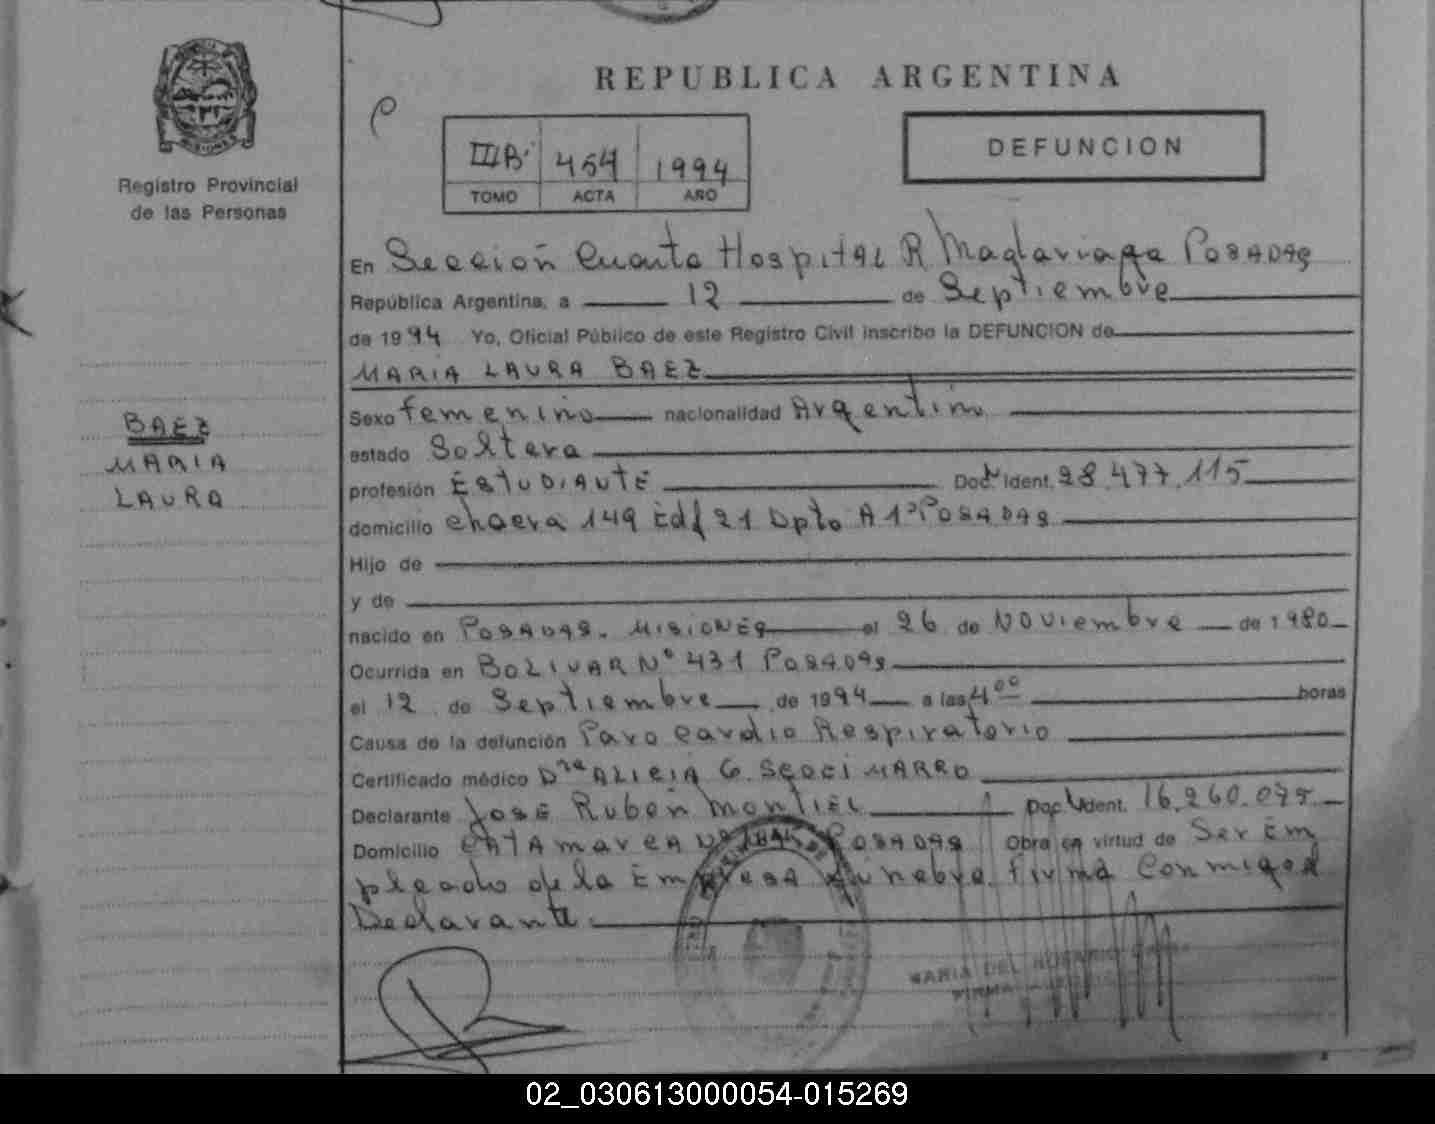 REPUBLICA ARGENTINA
DEFUNCION
IIIB 454 1994
TOMO ACTA AÑO
MISIONES
Registro Provincial
de las Personas
BAEZ
MARIA
LAURA
En Sección Cuarta Hospital R Madariaga POSADAS
República Argentina, a 12 de Septiembre
de 1994 Yo, Oficial Público de este Registro Civil inscribo la DEFUNCION de
MARIA LAURA BAEZ
Sexo femenino nacionalidad Argentin
estado Soltera
profesión ESTUDIANTE Doc. Ident. 28.477.115
domicilio chacra 149 Edf 21 Dpto A 1º POSADAS
Hijo de
y de
nacido en POSADAS - MISIONES el 26 de Noviembre de 1980
Ocurrida en BOLIVAR Nº 431 POSADAS
el 12 de Septiembre de 1994 a las 4 00 horas
Causa de la defunción Paro Cardio Respiratorio
Certificado médico Dra ALICIA G. SCOCIMARRO
Declarante José Rubén Montiel Doc. Ident. 16.260.075
Domicilio CATAMARCA POSADAS Obra en virtud de Ser Em
pleado de la Empresa Funebre. firma Conmigo el
Declarante.
MARIA DEL ROSARIO
02_030613000054-015269